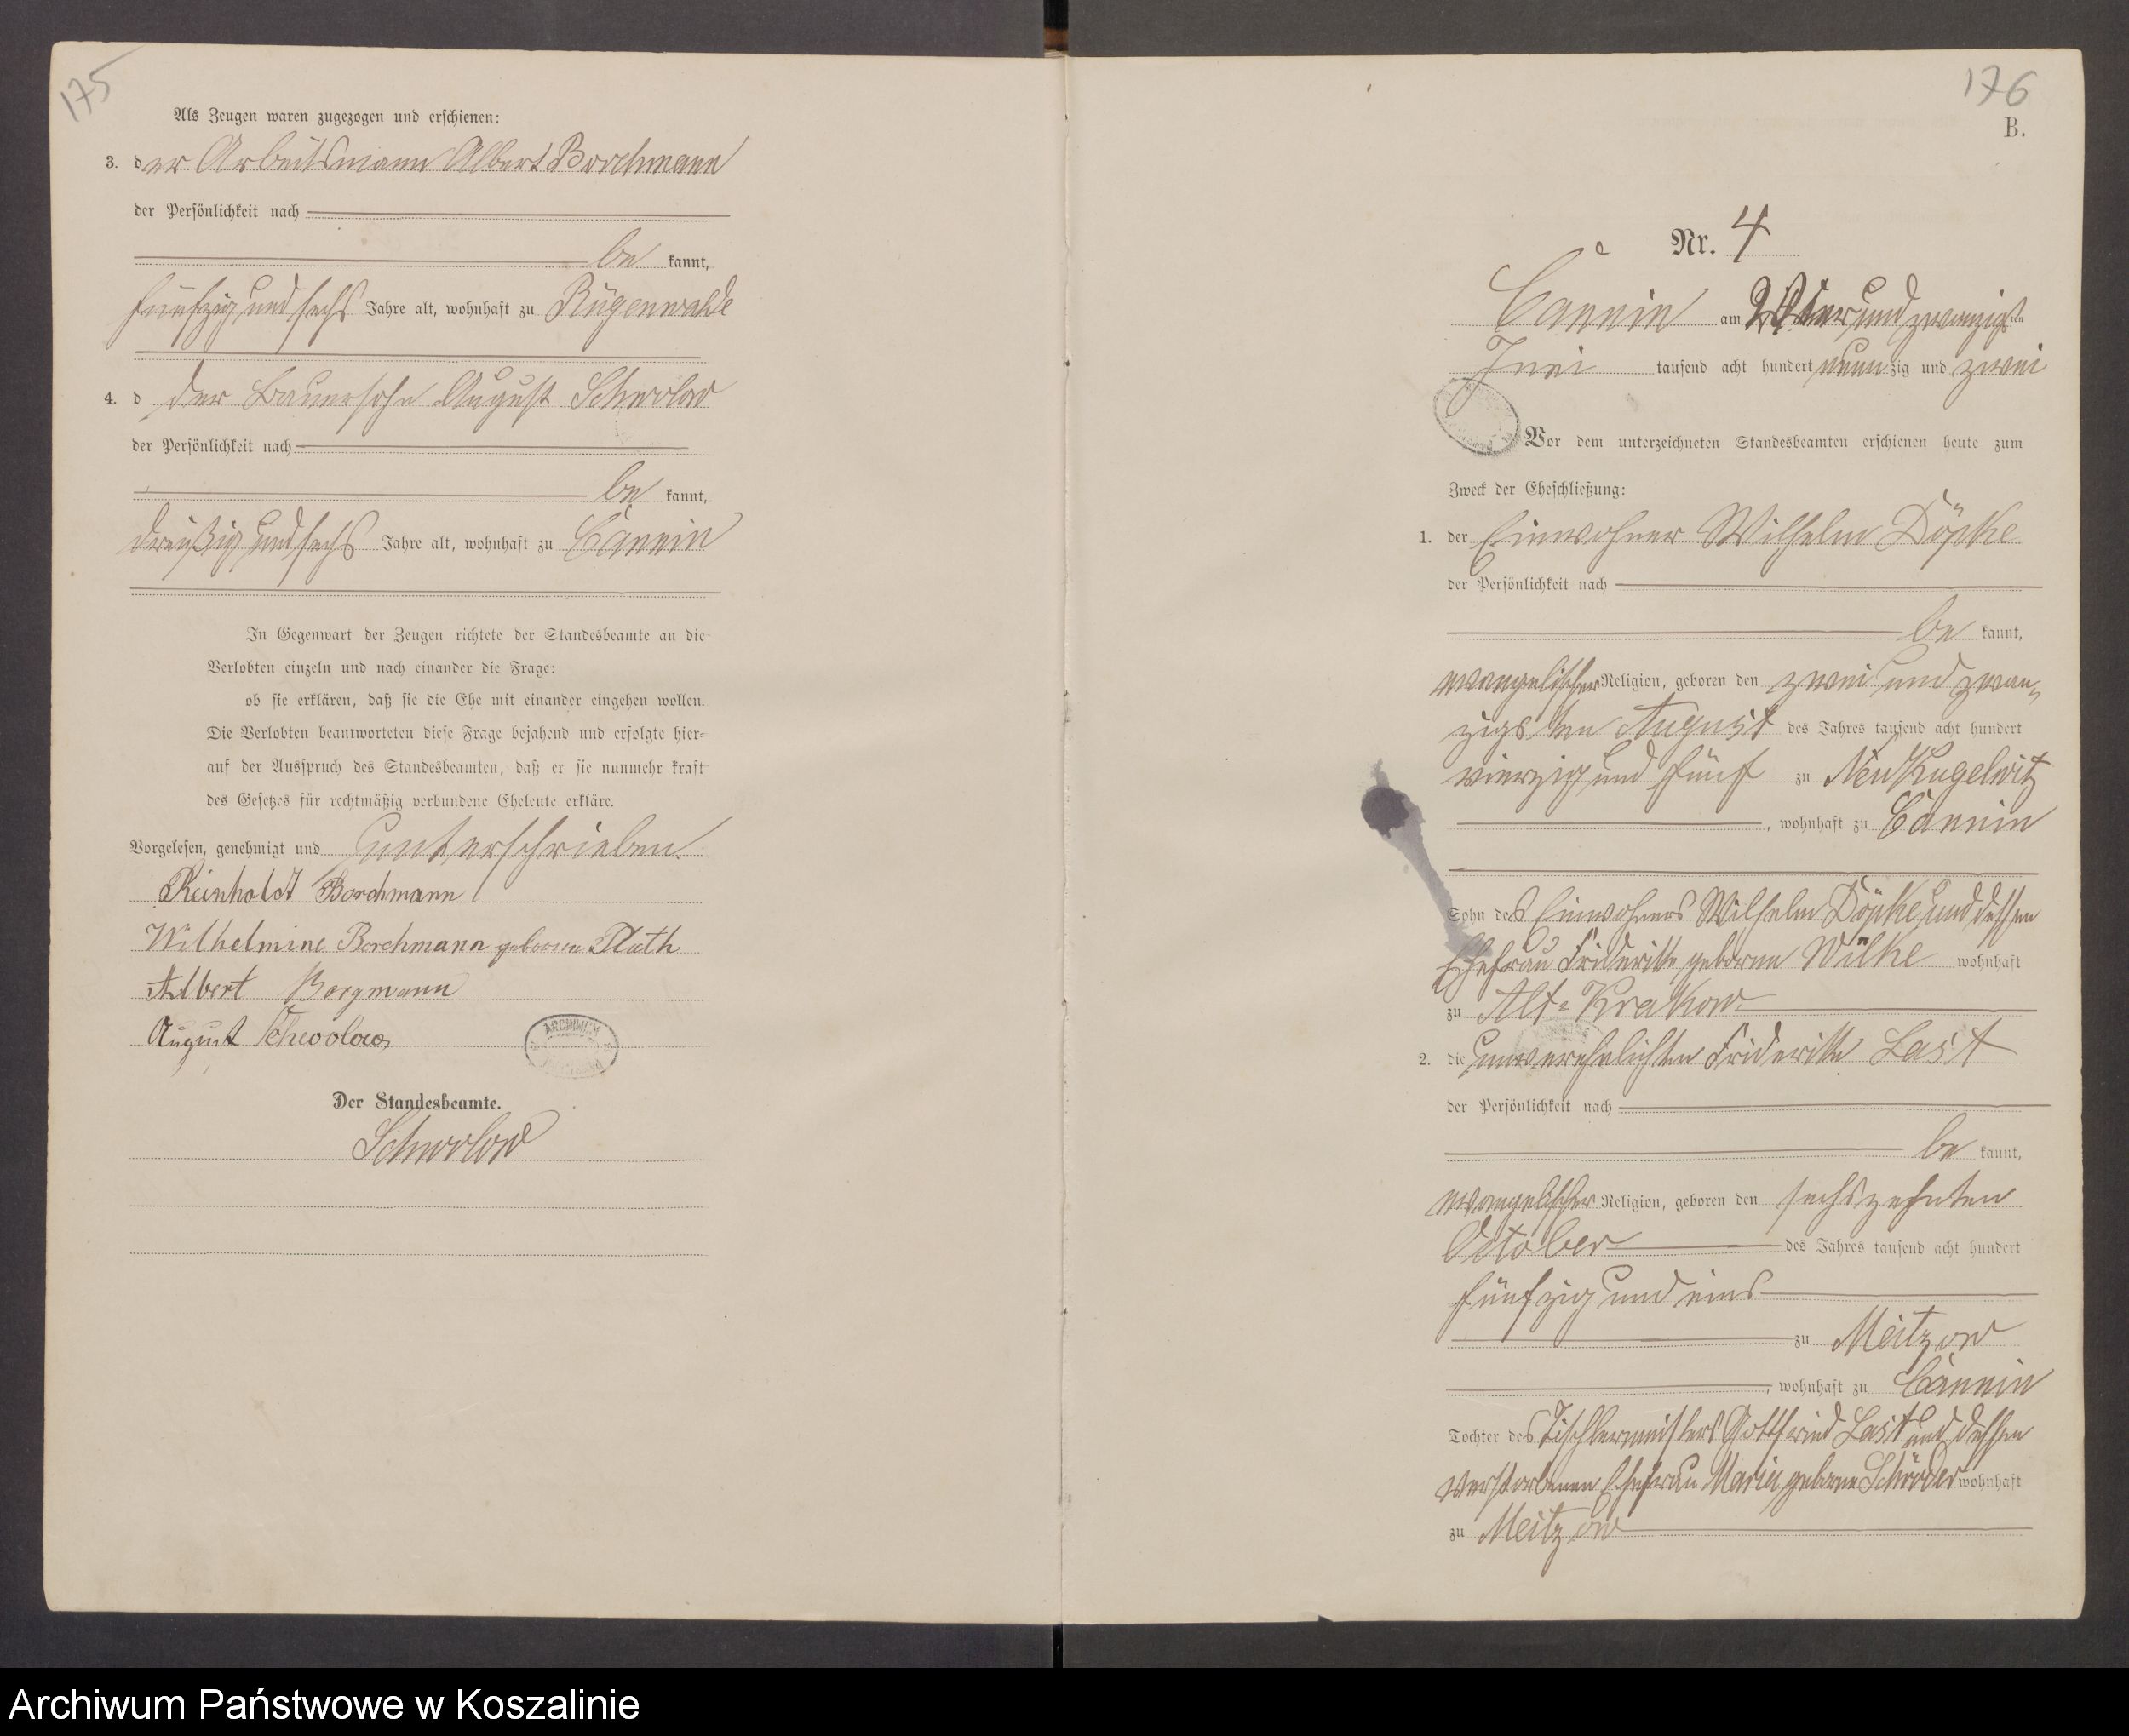 175
Als Zeugen waren zugezogen und erschienen:
3. der Arbeitsmann Albert Borchmann
der Persönlichkeit nach
be kannt,
fünfzig und sechs Jahre alt, wohnhaft zu Rügenwalde
4. d der Bauersohn August Schwolow
der Persönlichkeit nach
be kannt,
dreißig und sechs Jahre alt, wohnhaft zu Cannin
In Gegenwart der Zeugen richtete der Standesbeamte an die
Verlobten einzeln und nach einander die Frage:
ob sie erklären, daß sie die Ehe mit einander eingehen wollen.
Die Verlobten beantworteten diese Frage bejahend und erfolgte hier-
auf der Ausspruch des Standesbeamten, daß er sie nunmehr kraft
des Gesetzes für rechtmäßig verbundene Eheleute erkläre.
Vorgelesen, genehmigt und unterschrieben.
Reinholdt Borchmann
Wilhelmine Borchmann geboren Plath
Albert Borgmann
August Schwolow
ARCHIWUM
Der Standesbeamte.
Schwolow
176
B.
Nr. 4
Cannin am vier und zwanzigsten
Juni tausend acht hundert neunzig und zwei
Vor dem unterzeichneten Standesbeamten erschienen heute zum
Zweck der Eheschließung:
1. der Einwohner Wilhelm Döpke
der Persönlichkeit nach
be kannt,
evangelischer Religion, geboren den zwei und zwan-
zigsten August des Jahres tausend acht hundert
vierzig und fünf zu Neu Kugelwitz
, wohnhaft zu Cannin
Sohn des Einwohners Wilhelm Döpke und dessen
Ehefrau Friderike geborne Wilke wohnhaft
zu Alt-Krakow
2. die unverehelichten Friderike Last
der Persönlichkeit nach
be kannt,
evangelischer Religion, geboren den sechszehnten
October des Jahres tausend acht hundert
fünfzig und eins
zu Meitzow
, wohnhaft zu Cannin
Tochter des Tischlermeisters Gottfried Last und dessen
verstorbenen Ehefrau Marie geborne Schröder wohnhaft
zu Meitzow
Archiwum Państwowe w Koszalinie